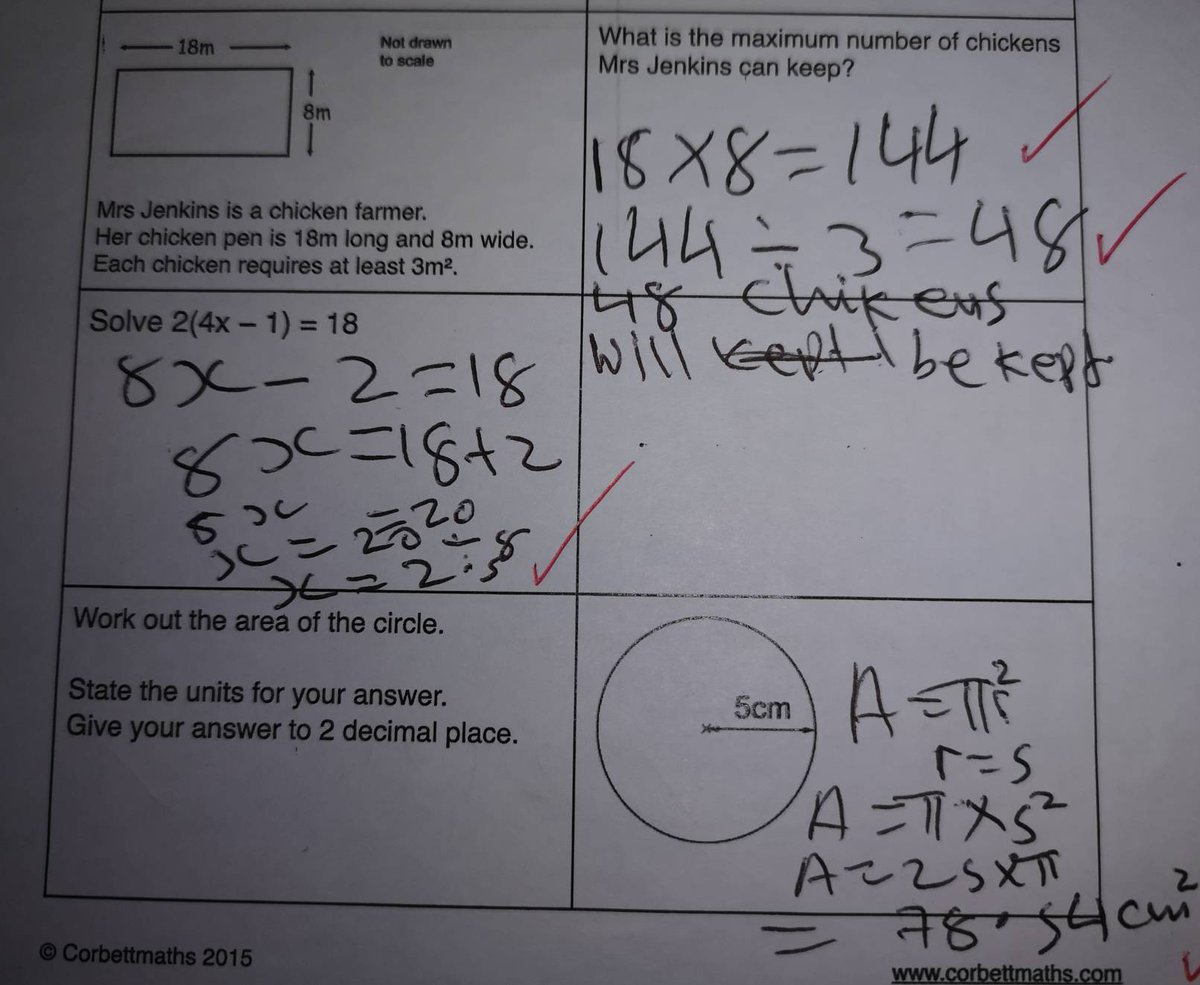 18m
Not drawn
to scale
8m
Mrs Jenkins is a chicken farmer.
Her chicken pen is 18m long and 8m wide.
Each chicken requires at least 3m².
What is the maximum number of chickens
Mrs Jenkins can keep?
18×8=144
144÷3=48
48 chikens
will kept be kept
Solve 2(4x – 1) = 18
8x-2=18
8x=18+2
8x=20
x=20÷8
x=2.5
Work out the area of the circle.
State the units for your answer.
Give your answer to 2 decimal place.
5cm
A=πr²
r=5
A=π×5²
A=25×π
= 78.54cm²
© Corbettmaths 2015
www.corbettmaths.com